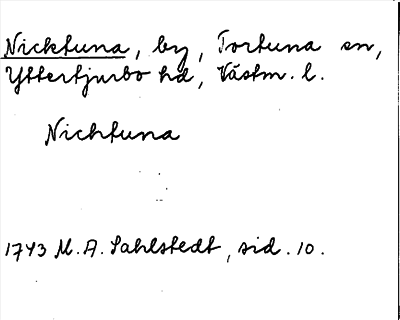 Nicktuna, by, Tortuna sn,
Yttertjurbo hd, Västm. l.
Nichtuna
1743 M. A. Sahlstedt, sid. 10.